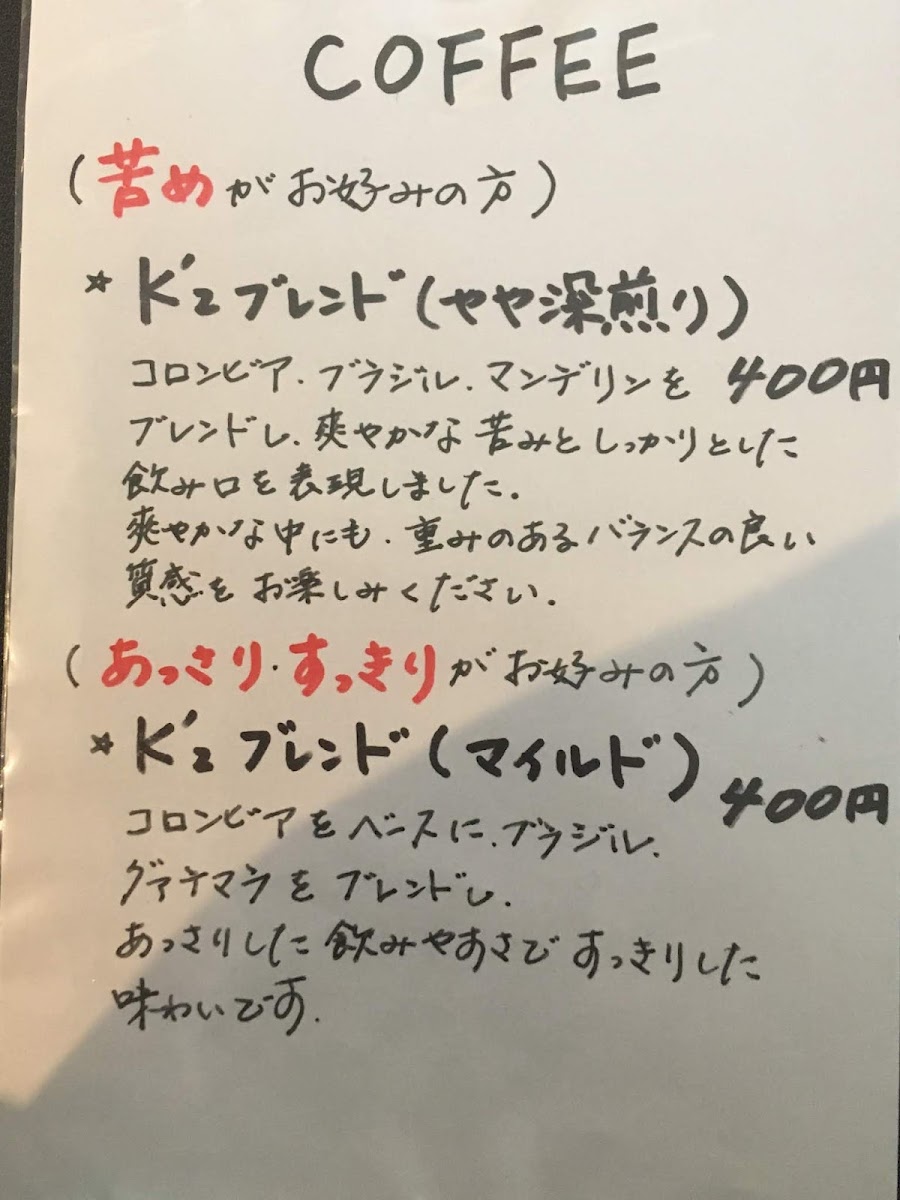 COFFEE
(苦めがお好みの方)
* K'zブレンド(やや深煎り)
コロンビア.ブラジル.マンデリンを 400円
ブレンドし.爽やかな苦みとしっかりとした
飲み口を表現しました.
爽やかな中にも.重みのあるバランスの良い
質感をお楽しみください.
(あっさり.すっきりがお好みの方)
* K'zブレンド(マイルド)
400円
コロンビアをベースに.ブラジル.
グァテマラをブレンドし.
あっさりした飲みやすさですっきりした
味わいです.